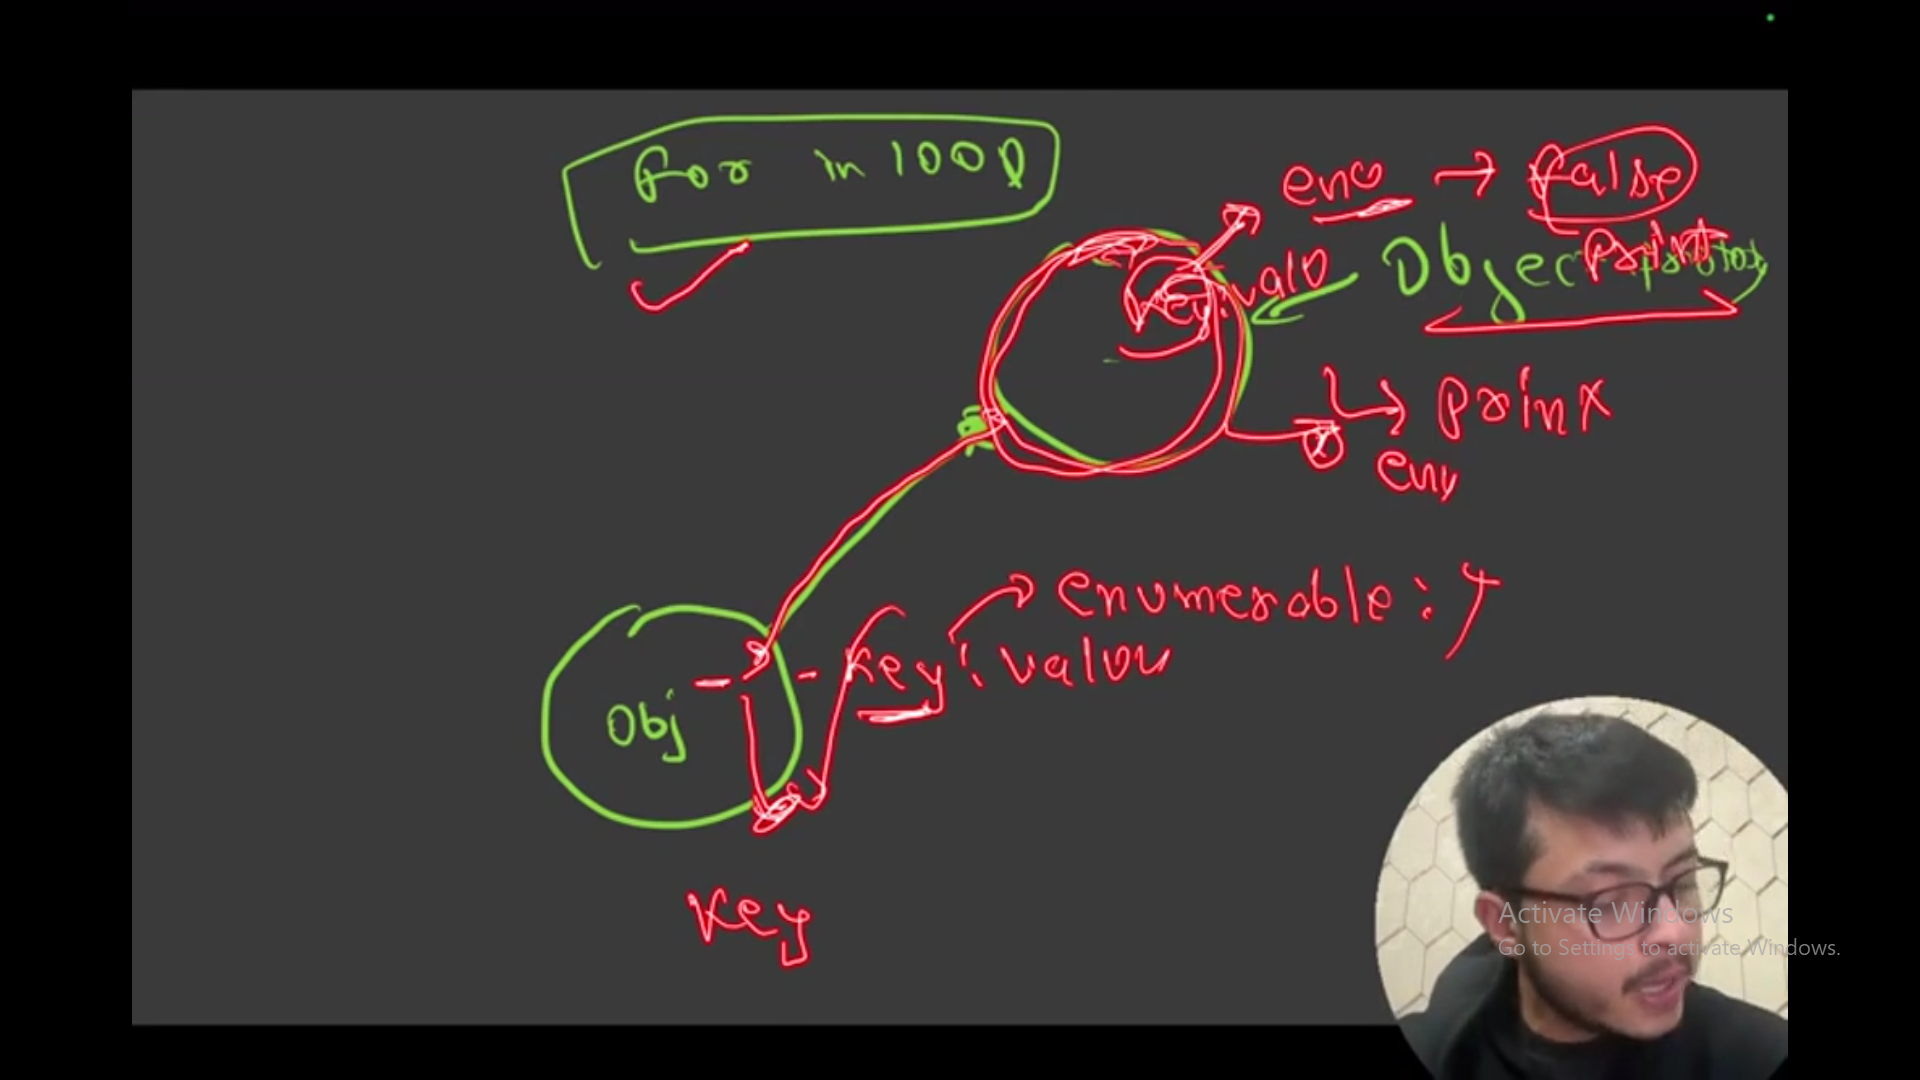 For in loop
enu → false
print
key: valu
Object
print
enu
enumerable:
key: value
Obj
key
Activate Windows
Go to Settings to activate Windows.